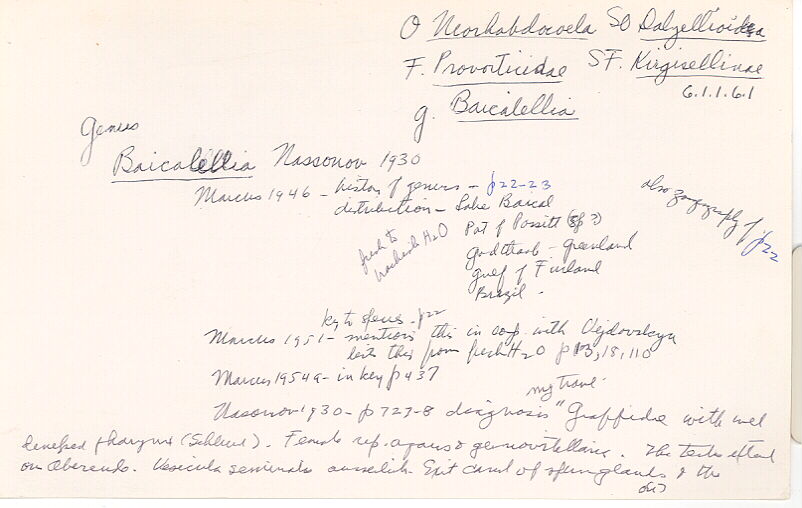 O Neorhabdocoela SO Dalyellioidea
F. Provorticidae SF. Kirgisellinae
6.1.1.6.1
g. Baicalellia
genus
Baicalellia Nassonov 1930
Marcus 1946 - history of genus - p22-23
distribution - Lake Baical
also zoogeography of p22
fresh to brackish H2O
Pat of Possitt (sp?)
Godthaab - Greenland
Gulf of Finland
Brazil.
key to species - p22
Marcus 1951 - mentions this in comp. with Vejdovskya
lists this from fresh H2O p 13, 18, 110
Marcus 1954a - in key p 437
my trans.
Nasonov 1930 - p 727-8 diagnosis "Graffidae with wel
pharynx (Schlund). Female rep. & germovitellaria. The testes
on. Vesicula seminalis Exit canal of & the